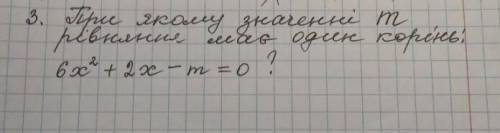 3. При якому значенні m
рівняння має один корінь:
6x² + 2x - m = 0 ?